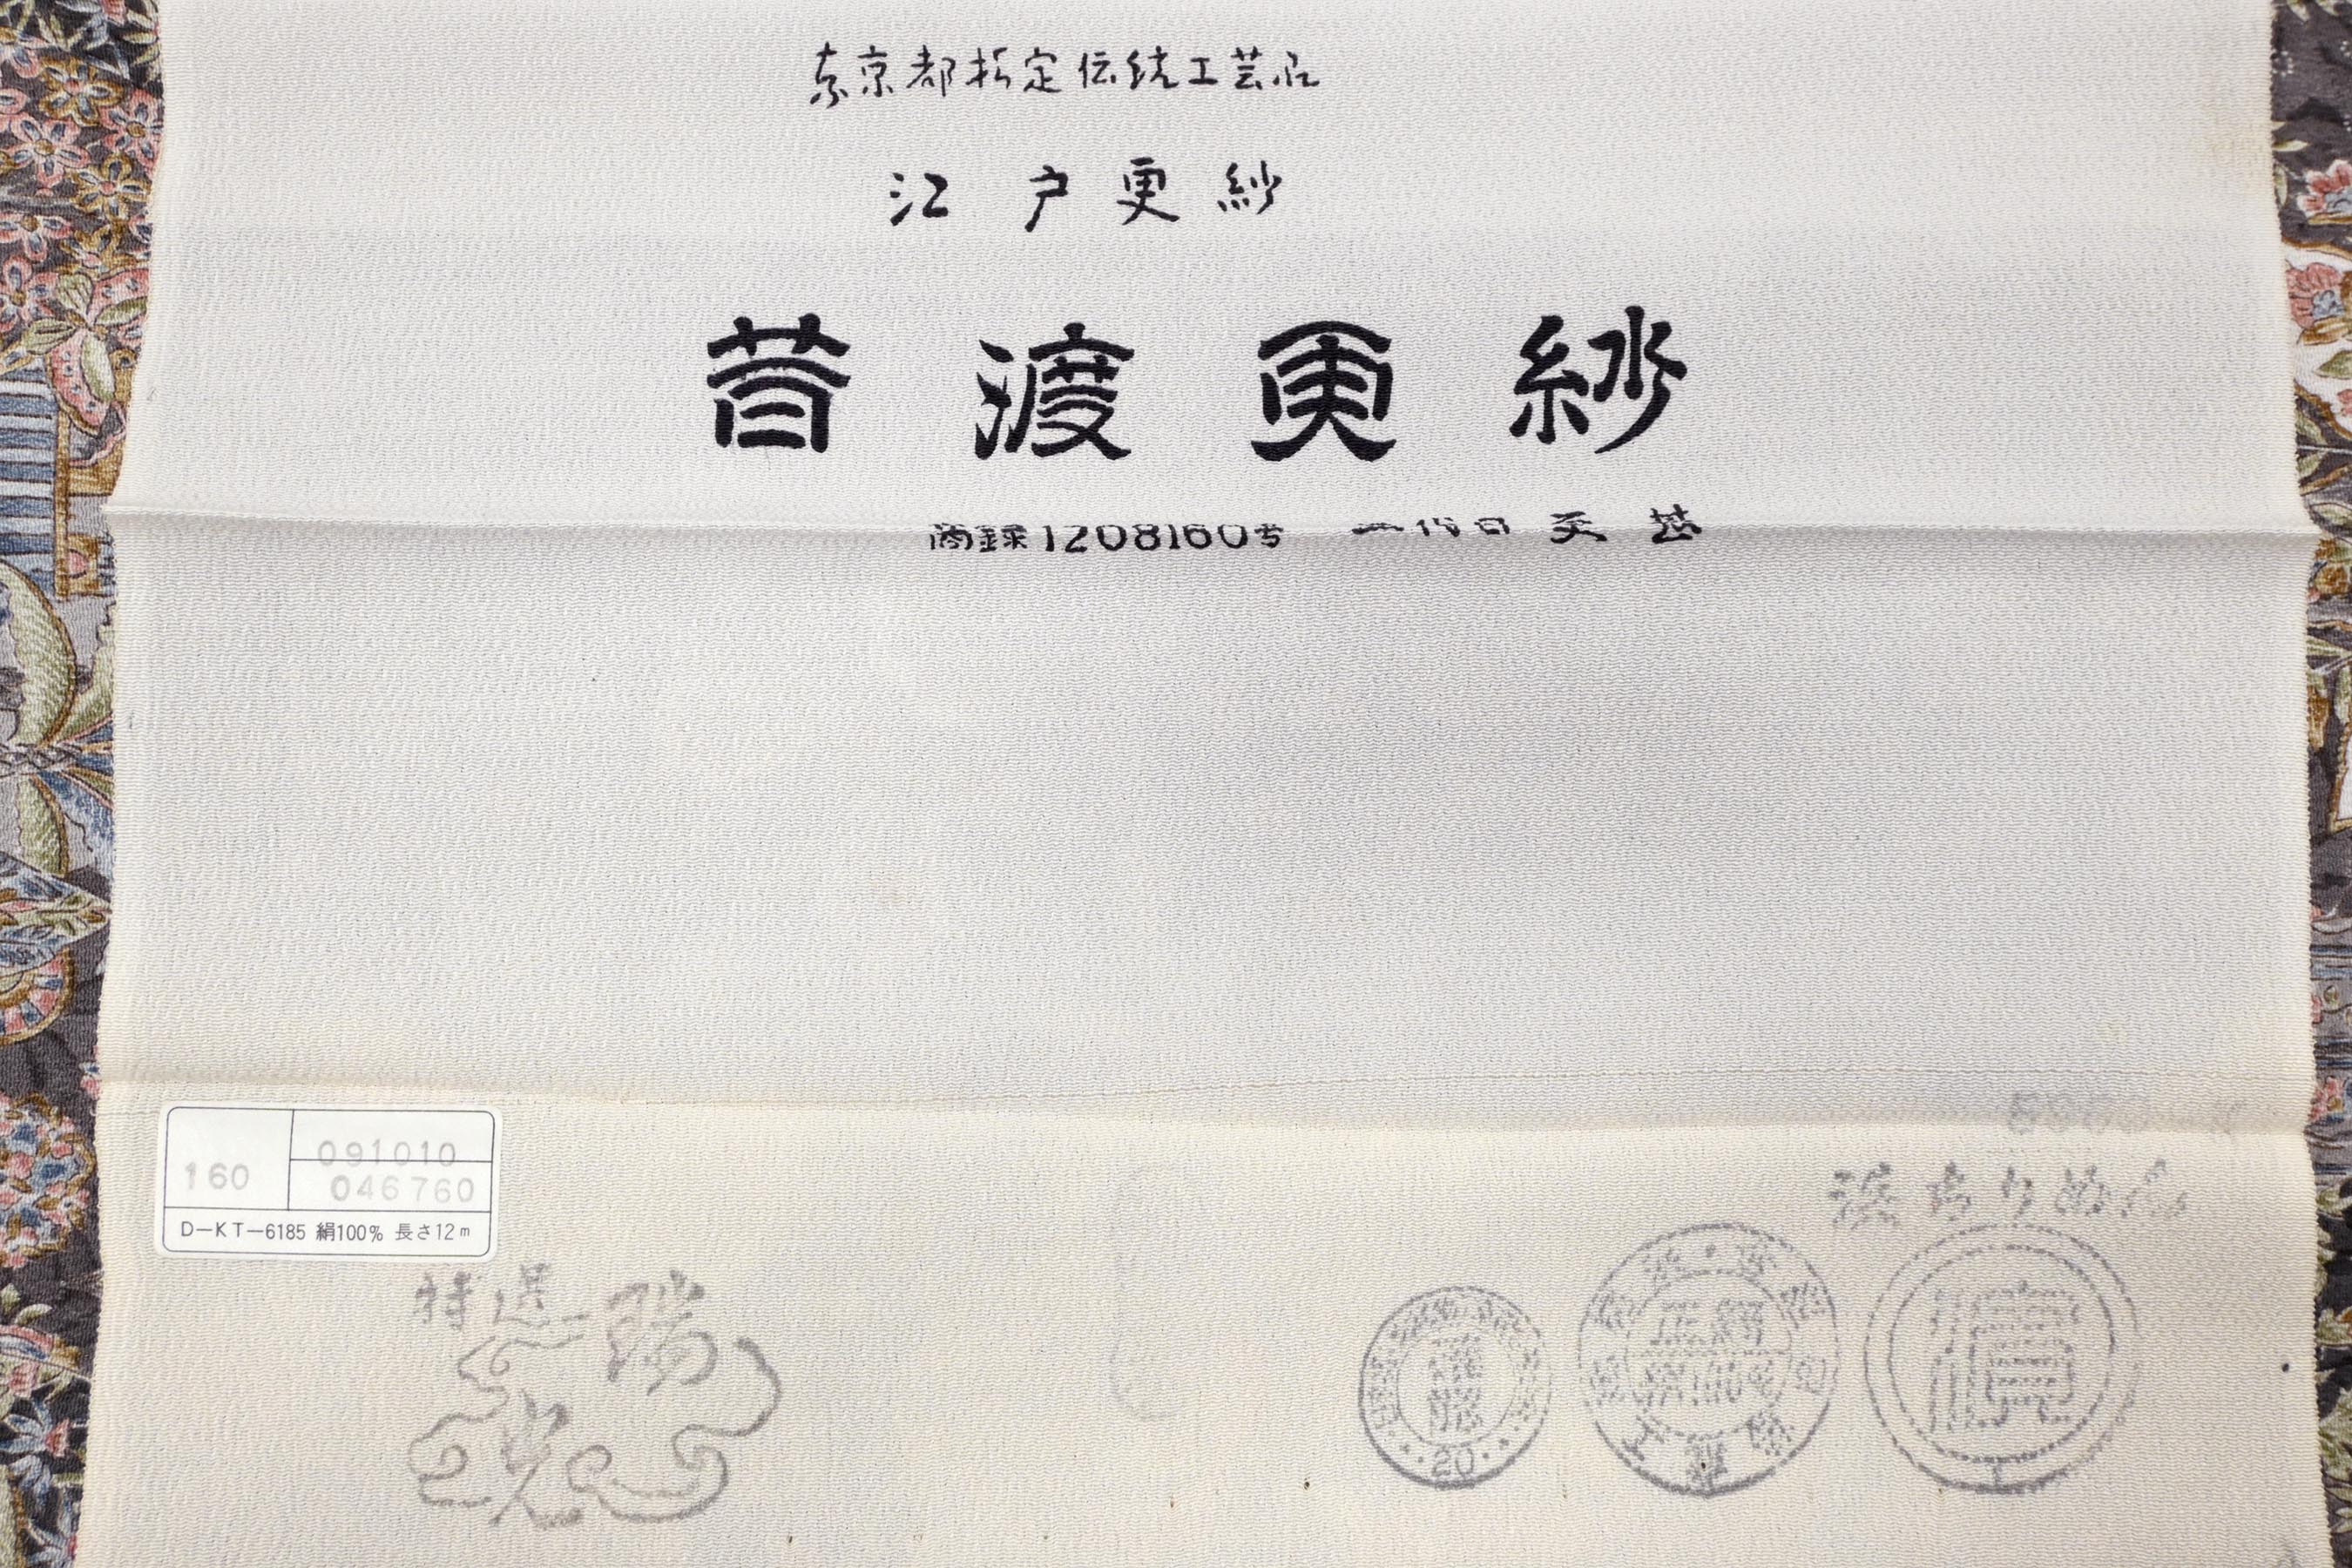 東京都指定伝統工芸品
江戸更紗
昔渡更紗
商録1208160号 二代目 更 甚
160
091010
046760
D-KT-6185 絹100% 長さ12m
浜ちりめん
特選 瑞光
20